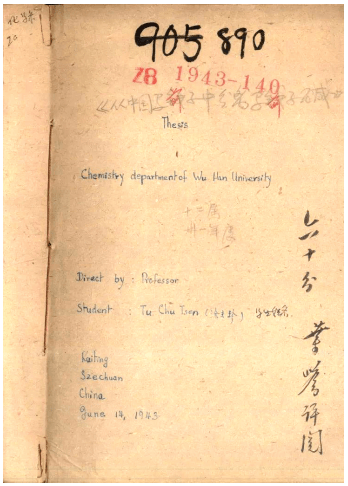 905 890
ZB 1943-140
Thesis
Chemistry department of Wu Han University
十二届
卅一年度
Direct by : Professor
Student : Tu Chu Tsen
Kaiting
Szechuan
China
June 14, 1943
六十分
葉嶠評閱